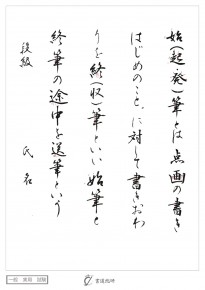 始(起・発)筆とは点画の書き
はじめのこと。に対して書きおわ
りを終(収)筆といい始筆と
終筆の途中を送筆という
段級 氏名
一般 実用 試験
書道芸術